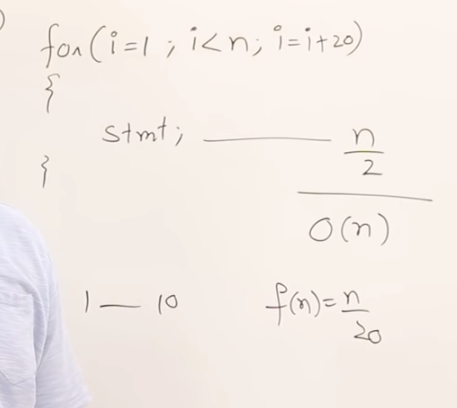 )
for(i=1 ; i<n; i=i+20)
{
stmt; — n/2
}
O(n)
1 — 10 f(n)=n/20